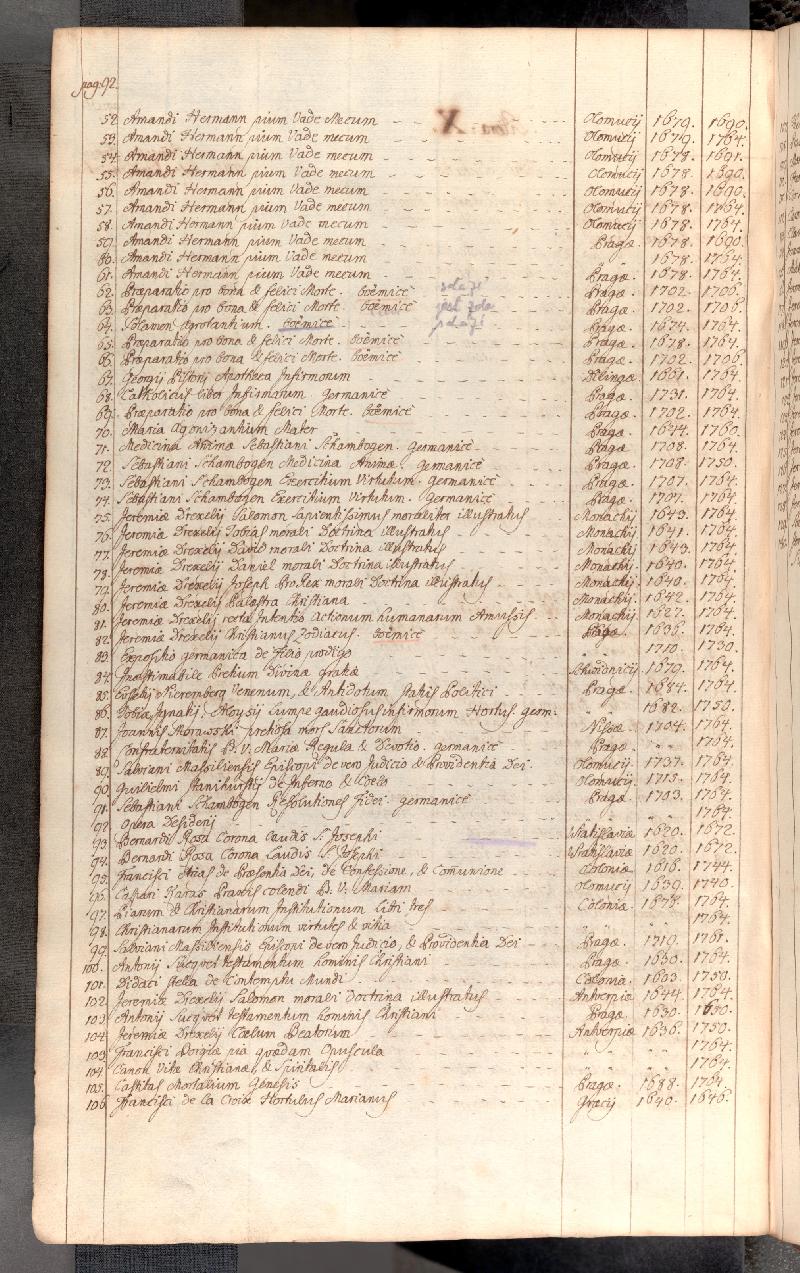 pag. 92.
52. Amandi Hermann pium Vade Mecum Olomucij 1679. 1690.
53. Amandi Hermann pium Vade mecum Olomucij 1679. 1764.
54. Amandi Hermann pium Vade mecum Olomucij 1678. 1691.
55. Amandi Hermann pium Vade mecum Olomucij 1678. 1690.
56. Amandi Hermann pium Vade mecum Olomucij 1678. 1690.
57. Amandi Hermann pium Vade mecum Olomucij 1678. 1764.
58. Amandi Hermann pium Vade mecum Olomucij 1678. 1764.
59. Amandi Hermann pium Vade mecum Pragæ 1678. 1690.
60. Amandi Hermann pium Vade mecum 1678. 1764.
61. Amandi Hermann pium Vade mecum Pragæ. 1678. 1764.
62. Præparatio pro bona & felici Morte. boëmicè Pragæ. 1702. 1706.
63. Præparatio pro bona & felici Morte. boëmicè Pragæ. 1702. 1706.
64. Solamen Ægrotantium. boëmicè Pragæ. 1674. 1764.
65. Præparatio pro bona & felici Morte. boëmicè Pragæ. 1678. 1764.
66. Præparatio pro bona & felici Morte. boëmicè Pragæ. 1702. 1706
67. Georgij Pistorij Apotheca Infirmorum 1661. 1764.
68. Catholicus liber Infirmorum germanicè Pragæ. 1731. 1764.
69. Præparatio pro bona & felici Morte. boëmicè Pragæ. 1702. 1764.
70. Maria Agonizantium Mater Pragæ. 1644. 1760.
71. Medicina Animæ Sebastiani Schambogen. germanicè Pragæ. 1708. 1764.
72. Sebastiani Schambogen Medicina Animæ. germanicè Pragæ. 1708. 1750.
73. Sebastiani Schambogen Exercitium Virtutum. germanicè Pragæ. 1707. 1764.
74. Sebastiani Schambogen Exercitium Virtutum. germanicè Pragæ. 1707. 1764.
75. Jeremiæ Drexelij Salomon sapientissimus moraliter illustratus Monachij 1643. 1764.
76. Jeremiæ Drexelij Tobias morali Doctrina illustratus Monachij 1641. 1764.
77. Jeremiæ Drexelij David morali Doctrina illustratus Monachij 1643. 1764.
78. Jeremiæ Drexelij Daniel morali Doctrina illustratus Monachij. 1640. 1764.
79. Jeremiæ Drexelij Joseph ProRex morali Doctrina illustratus Monachij. 1640. 1764.
80. Jeremiæ Drexelij Palæstra Christiana Monachij. 1642. 1764.
81. Jeremiæ Drexelij recta Intentio Actionum humanarum Amussis Monachij 1627. 1764.
82. Jeremiæ Drexelij Christianus Zodiacus. boëmicè Pragæ 1636. 1764.
83. Expositio germanica de filio prodigo " 1710. 1730.
84. Inæstimabile Pretium Divinæ gratiæ 1679. 1764.
85. Eusebij Nieremberg Venenum, & Antidotum statûs Politici Pragæ. 1684. 1764.
86. Tobiæ Ignatij, Aloysij Lumpe gaudiosus infirmorum Hortus. germ. " " 1682. 1750.
87. Joannis Morawski pretiosa mors Sanctorum Nissæ. 1704. 1764.
88. Confraternitatis B. V. Mariæ Regula & Devotio. germanicè Pragæ " " 1764.
89. Salviani Massiliensis Episcopi de vero Judicio & Providentia Dei Olomucij. 1737. 1764.
90. Guilielmi Stanihurstij de Inferno & Coelo Olomucij. 1715. 1764.
91. Sebastiani Schambogen Resolutiones Fidei. germanicè Pragæ. 1703. 1764.
92. Opera Desiderij " " 1764.
93. Bernardi Rosa Corona Laudis S. Josephi Wratislaviæ 1620. 1672.
94. Bernardi Rosa Corona Laudis S. Josephi Wratislaviæ 1620. 1672.
95. Francisci Arias de Præsentia Dei, de Confessione, & Comunione Coloniæ 1616. 1744.
96. Caspari Karas Praxis colendi B. V. Mariam Olomucij 1639. 1740.
97. Piarum & Christianarum Institutionum Libri tres Coloniæ 1678. 1764.
98. Christianarum Institutionum virtutes & vitia " " 1764.
99. Salviani Massiliensis Episcopi de vero Judicio, & Providentia Dei Pragæ. 1719. 1761.
100. Antonij Sucquet testamentum hominis Christiani Pragæ. 1630. 1764.
101. Didaci Stella de Contemptu Mundi Coloniæ. 1603. 1750.
102. Jeremiæ Drexelij Salomon morali Doctrina illustratus Antverpiæ 1644. 1764.
103. Antonij Sucquet testamentum hominis Christiani Pragæ 1630. 1650.
104. Jeremiæ Drexelij Coelum Beatorum Antverpiæ 1636. 1750.
103. Francisci Borgiæ pia quædam Opuscula " " 1764.
104. Canon Vitæ Christianæ, & Spiritalis " " 1764.
105. Castitas Mortalium Genesis Pragæ. 1688. 1764.
106. Francisci de la Croix Hortulus Marianus Græcij 1640. 1646.